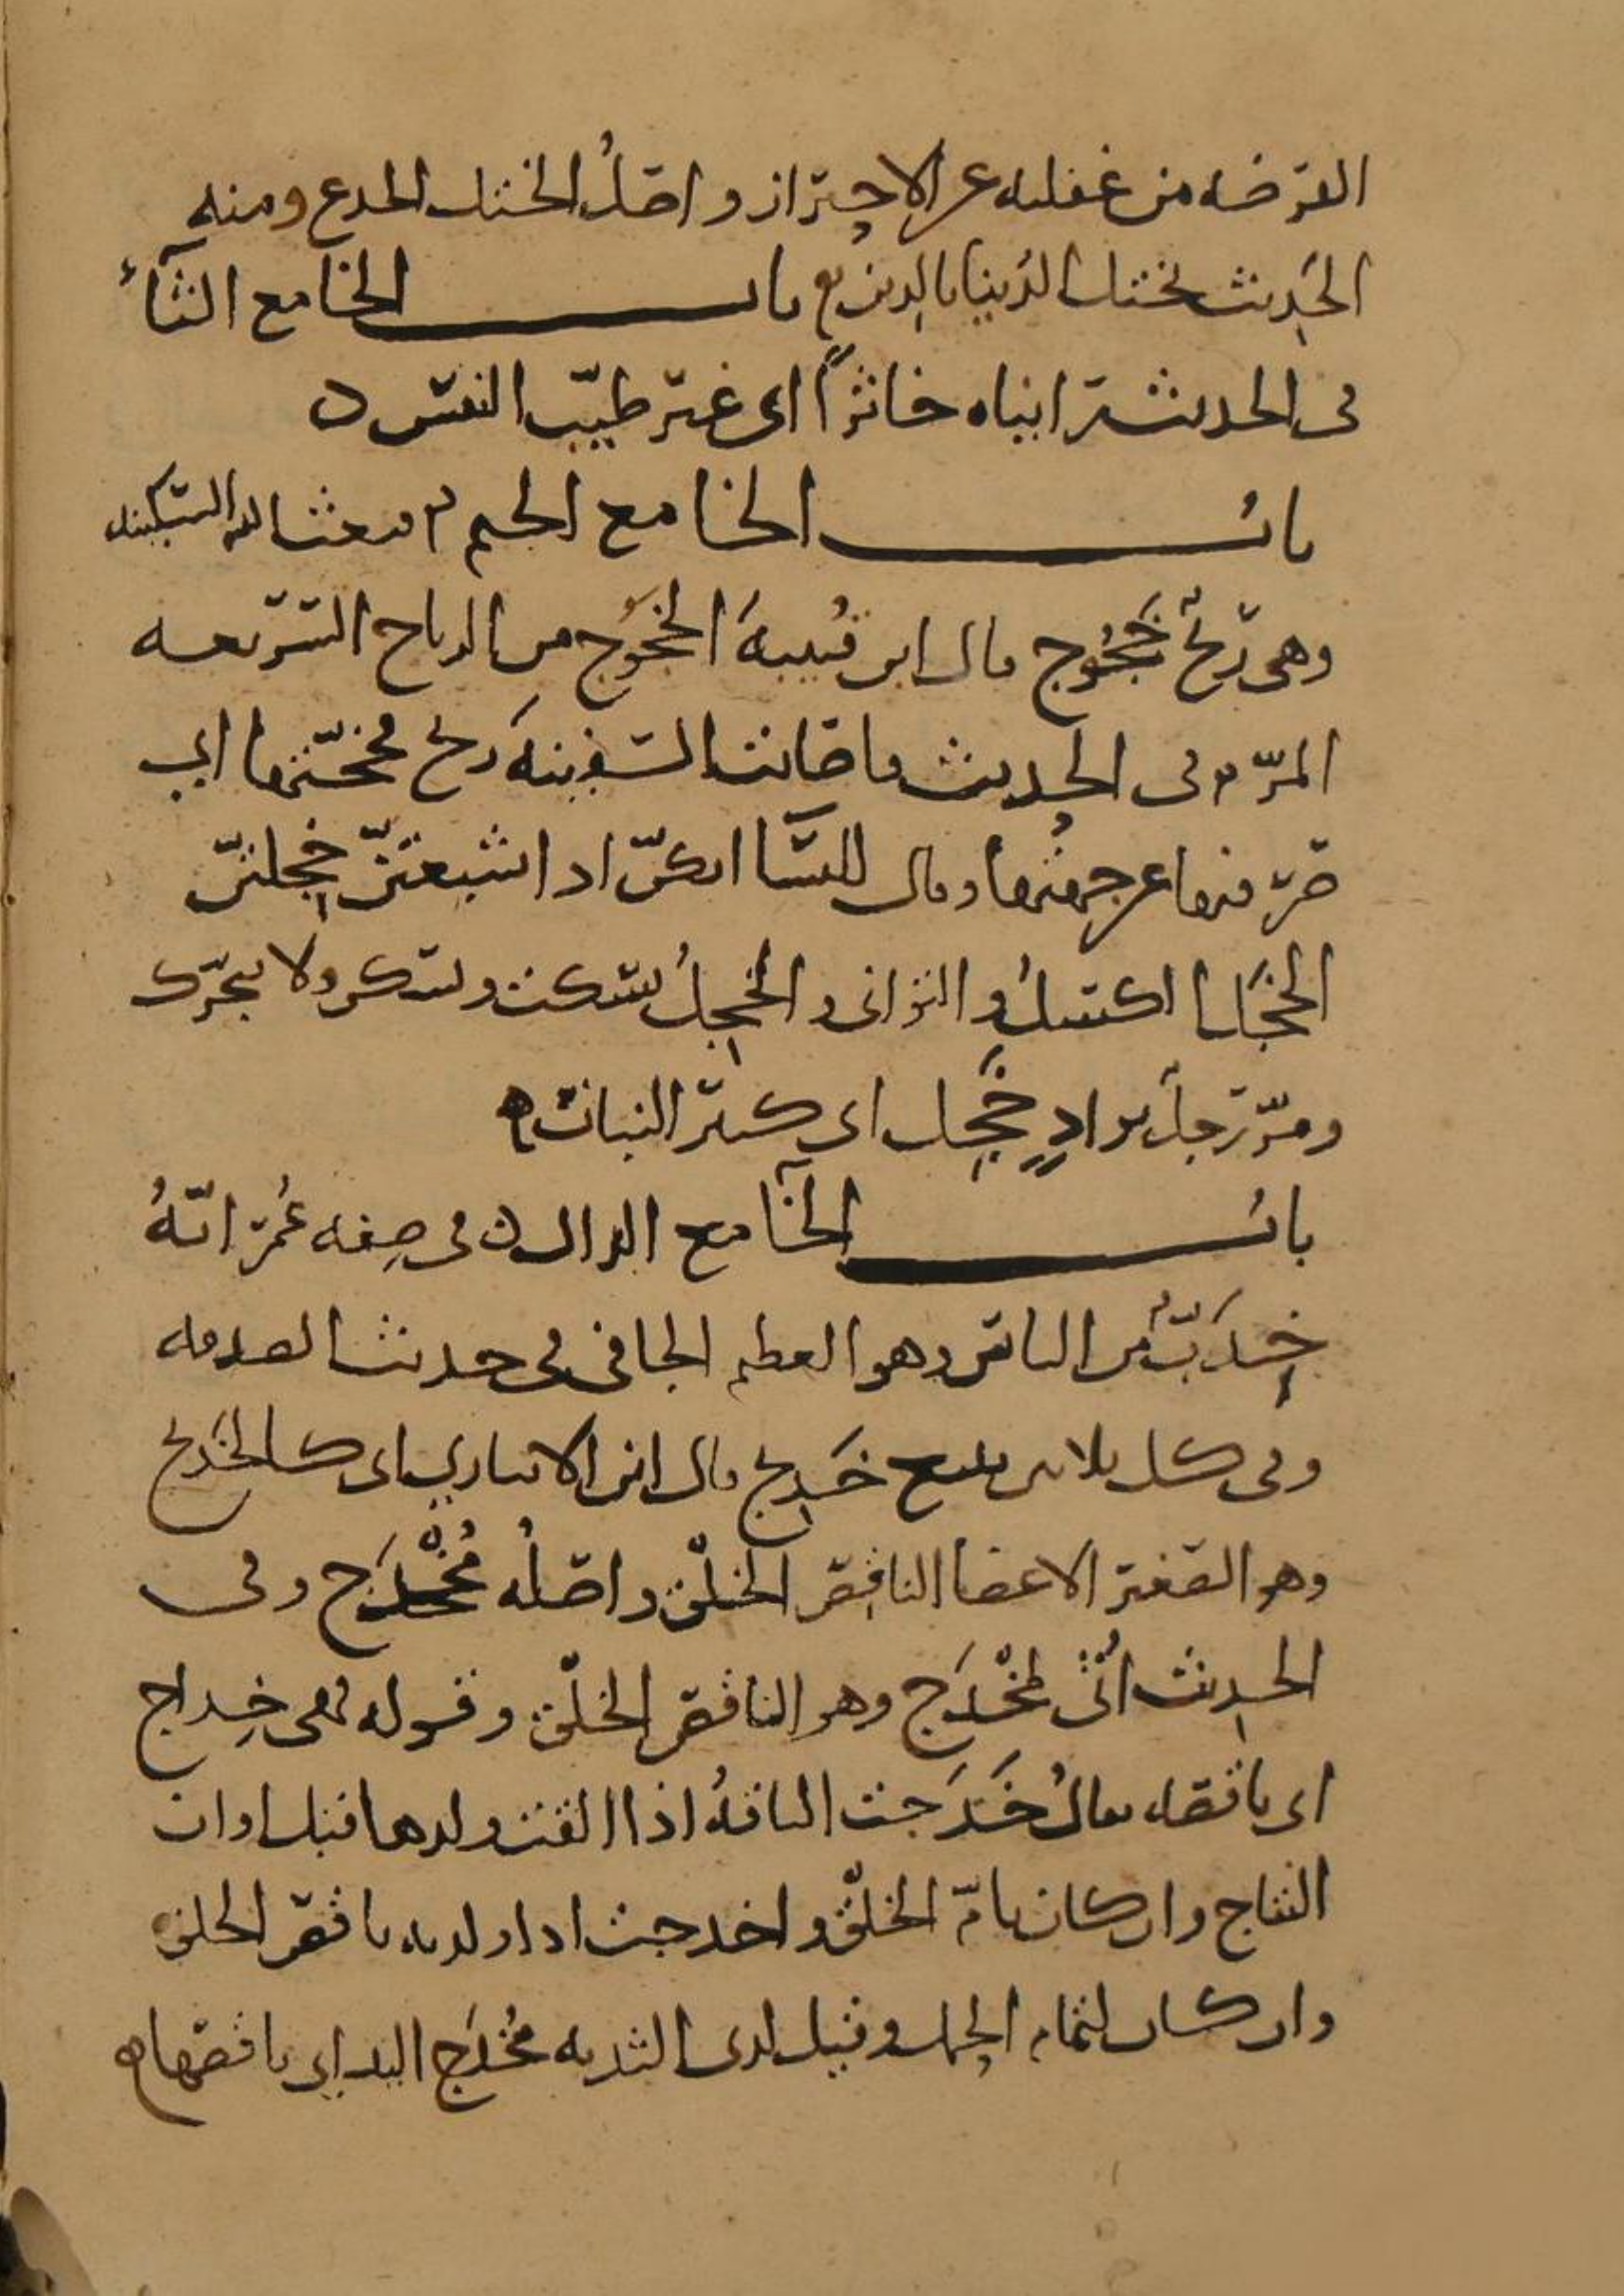 الفرصه من غفله عن الاحتراز واصلُ الختل الخدع ومنه
الحَدِيث تختل الدُنيا بالدِين باب الخا مع الثآء
فى الحديث رايناه خاثرًا اى غير طيّب النفس ن
بابُ الخا مع الجيم م بعث الله السكينه
وهى رِيحٌ خَجُوج قال ابن قُتيبهَ الخجَوُج من الرياح السريعه
المرّ وفى الحديث فاصابت السفِينهَ ريح فخجّتها اى
صرفتها عن جهتها وقال للنسآ انكنّ اذا شبعتنّ خجِلتنّ
الخجَل الكسلُ والتوانى والخجِلُ يسكت ويسكن ولا يتحرّك
ومرّ رجلٌ بوادٍ خَجِل اى كثير النبات ه
بابُ الخآ مع الدال ن فى صِفه عُمرَ انّهُ
خِدَبٌّ من الناس وهو العظيم الجافى فى حديث الصدقه
وفى كل ثلاثين تبيع خَدِيج قال ابن الانبارى اى كالخَدِيج
وهو الصغير الاعضا الناقِص الخلْق واصلُه مُخْدَج وفى
الحدِيث اُتى بمُخْدَج وهو الناقص الخلْق وقوله فهى خِداج
اى ناقصه يقالُ خَدَجت الناقهُ اذا القت ولدها قبل اوان
النتاج وان كان تامّ الخلْق واخدجت اذا ولدته ناقص الخلق
وان كان لتمام الحِمل وقيل لذى الثديه مُخْدَج اليد اى ناقصها ه